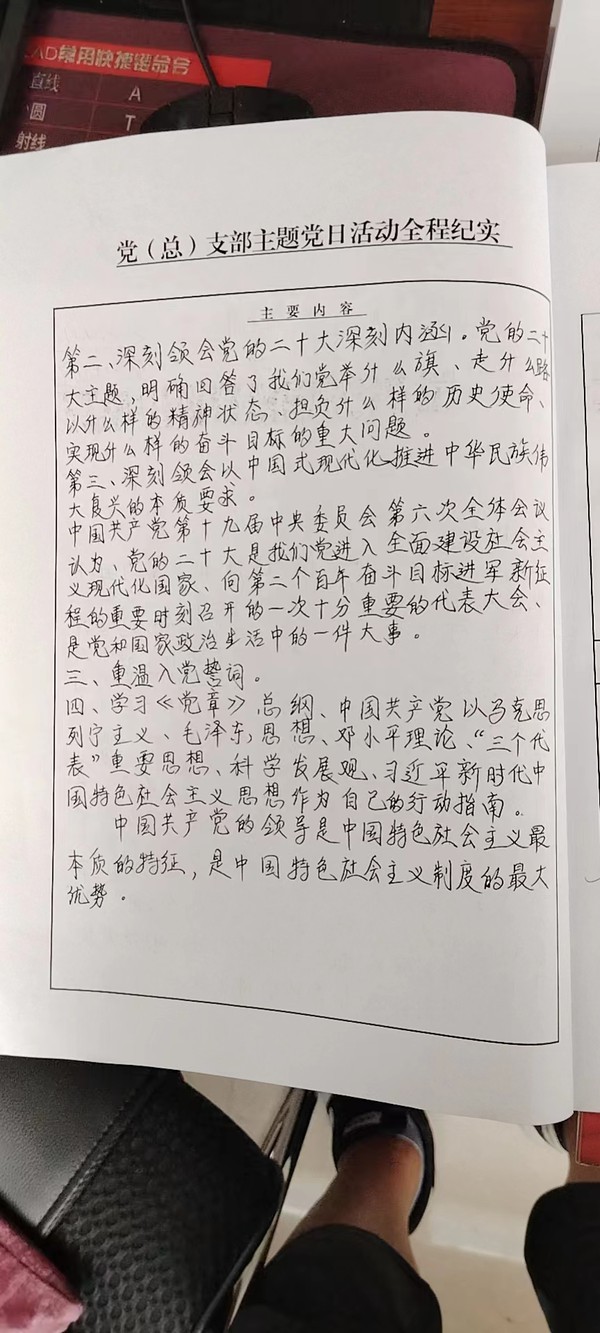 CAD常用快捷键命令
直线 A
圆 T
射线
党（总）支部主题党日活动全程纪实
主要内容
第二、深刻领会党的二十大深刻内涵。党的二十
大主题，明确回答了我们党举什么旗、走什么路、
以什么样的精神状态、担负什么样的历史使命、
实现什么样的奋斗目标的重大问题。
第三、深刻领会以中国式现代化推进中华民族伟
大复兴的本质要求。
中国共产党第十九届中央委员会第六次全体会议
认为，党的二十大是我们党进入全面建设社会主
义现代化国家、向第二个百年奋斗目标进军新征
程的重要时刻召开的一次十分重要的代表大会、
是党和国家政治生活中的一件大事。
三、重温入党誓词。
四、学习《党章》总纲、中国共产党以马克思
列宁主义、毛泽东思想、邓小平理论、“三个代
表”重要思想、科学发展观、习近平新时代中
国特色社会主义思想作为自己的行动指南。
中国共产党的领导是中国特色社会主义最
本质的特征，是中国特色社会主义制度的最大
优势。